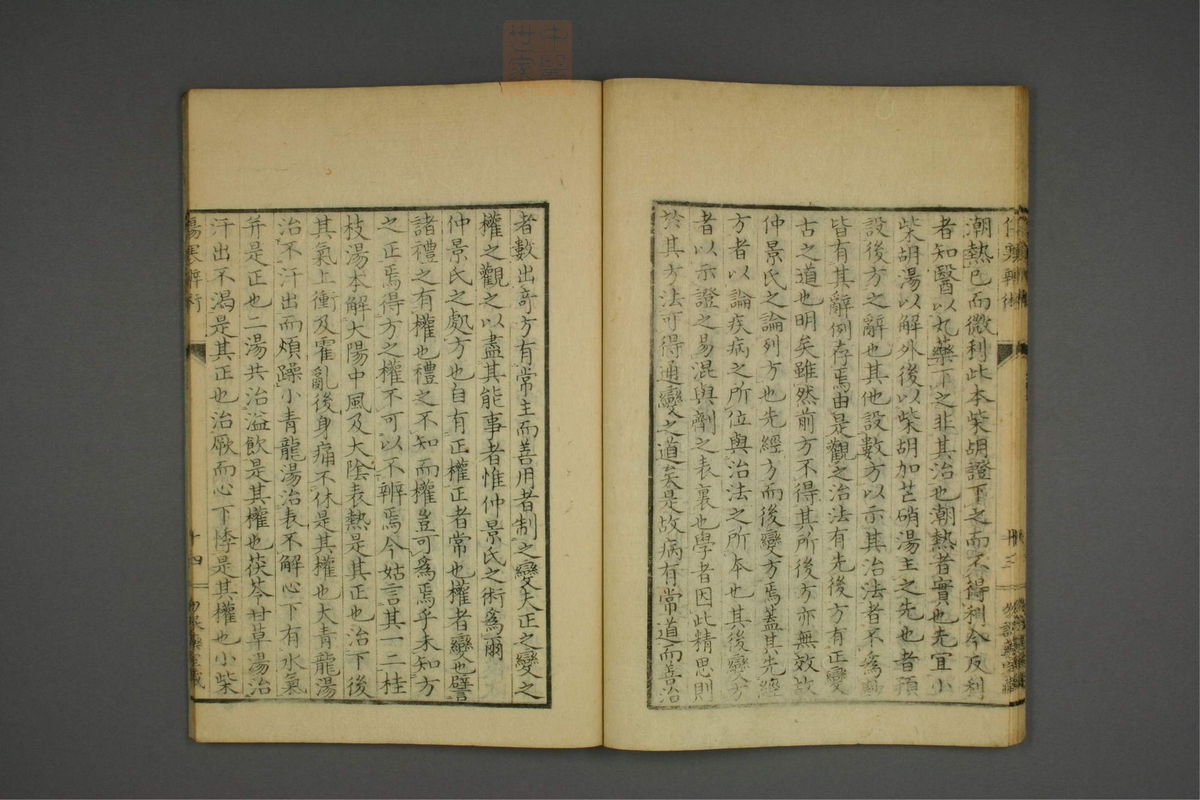 潮熱已而微利此本柴胡證下之而不得利今反利
者知醫以丸藥下之非其治也潮熱者實也先宜小
柴胡湯以解外後以柴胡加芒硝湯主之先也者預
設後方之辭也其他設數方以示其治法者不為
皆有其辭例存焉由是觀之治法有先後方有正變
古之道也明矣雖然前方不得其所後方亦無效故
仲景氏之論列方也先經方而後變方焉蓋其先經
方者以論疾病之所位與治法之所本也其後變方
者以示證之易混與劑之表裏也學者因此精思則
於其方法可得通變之道矣是故病有常道而善治
者數出奇方有常主而善用者制之變夫正之變之
權之觀之以盡其能事者惟仲景氏之術為爾
仲景氏之処方也自有正權正者常也權者變也譬
諸禮之有權也禮之不知而權豈可為焉乎未知方
之正焉得方之權不可以不辨焉今姑言其一二桂
枝湯本解大陽中風及大陰表熱是其正也治下後
其氣上衝及霍亂後身痛不休是其權也大青龍湯
治不汗出而煩躁小青龍湯治表不解心下有水氣
并是正也二湯共治溢飲是其權也茯苓甘草湯治
汗出不渴是其正也治厥而心下悸是其權也小柴
傷寒辨術
十四